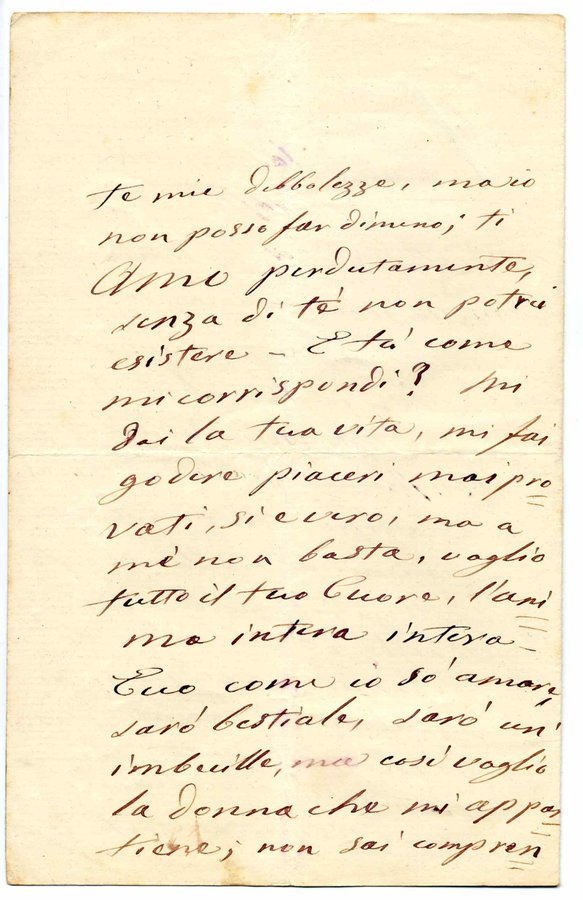 te mie debbolezze, ma io
non posso far dimeno; ti
Amo perdutamente,
senza di té non potrei
esistere - E tú come
mi corrispondi? Mi
dai la tua vita, mi fai
godere piaceri mai pro=
vati, si e vero, ma a
mé non basta, voglio
tutto il tuo Cuore, l'ani=
ma intera intera-
Ecco come io só amare,
saró bestiale, saró un'
imbecille, ma cosí voglio
la donna che mi appar=
tiene; non sai compren=